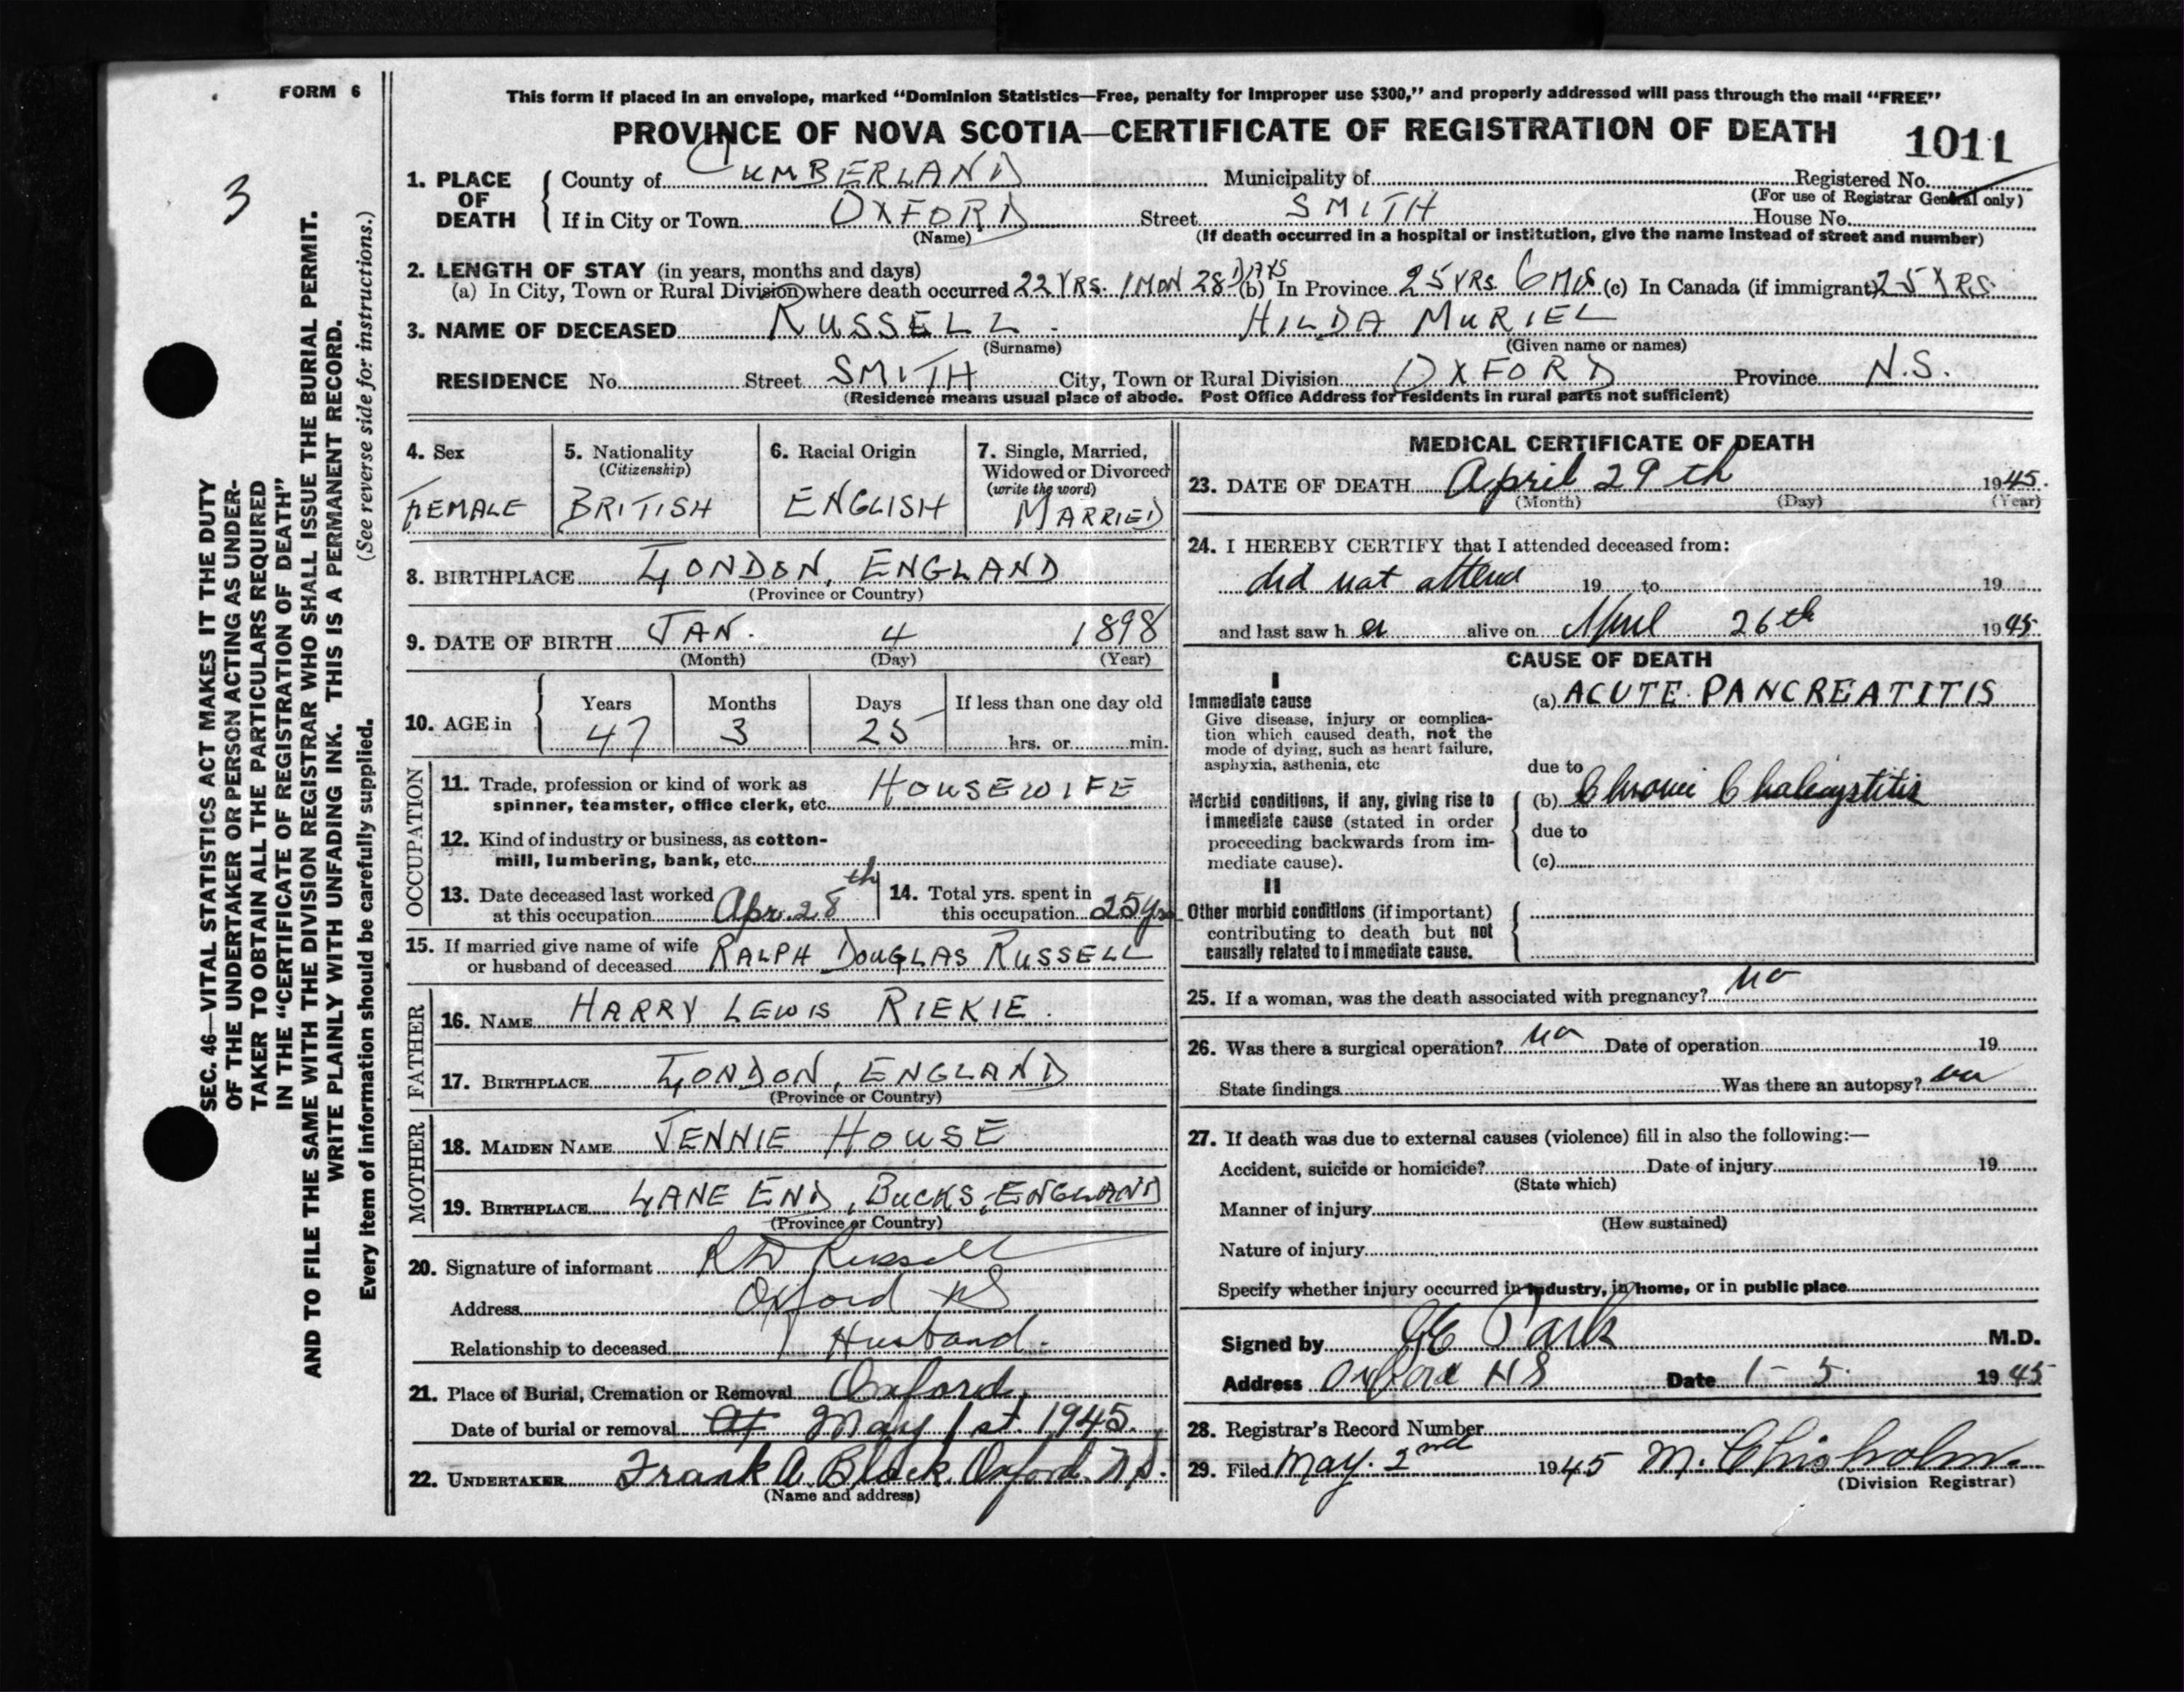 FORM 6
3
SEC. 46—VITAL STATISTICS ACT MAKES IT THE DUTY
OF THE UNDERTAKER OR PERSON ACTING AS UNDER-
TAKER TO OBTAIN ALL THE PARTICULARS REQUIRED
IN THE "CERTIFICATE OF REGISTRATION OF DEATH"
AND TO FILE THE SAME WITH THE DIVISION REGISTRAR WHO SHALL ISSUE THE BURIAL PERMIT.
WRITE PLAINLY WITH UNFADING INK. THIS IS A PERMANENT RECORD.
Every item of information should be carefully supplied. (See reverse side for instructions.)
This form if placed in an envelope, marked "Dominion Statistics—Free, penalty for improper use $300," and properly addressed will pass through the mail "FREE"
PROVINCE OF NOVA SCOTIA—CERTIFICATE OF REGISTRATION OF DEATH 1011
1. PLACE OF DEATH County of CUMBERLAND Municipality of Registered No.
(For use of Registrar General only)
If in City or Town OXFORD Street SMITH House No.
(Name) (If death occurred in a hospital or institution, give the name instead of street and number)
2. LENGTH OF STAY (in years, months and days)
(a) In City, Town or Rural Division where death occurred 22 YRS. 1 MON 28 DAYS (b) In Province 25 YRS 6 MOS (c) In Canada (if immigrant) 25 YRS.
3. NAME OF DECEASED RUSSELL HILDA MURIEL
(Surname) (Given name or names)
RESIDENCE No. Street SMITH City, Town or Rural Division OXFORD Province N.S.
(Residence means usual place of abode. Post Office Address for residents in rural parts not sufficient)
4. Sex
FEMALE
5. Nationality
(Citizenship)
BRITISH
6. Racial Origin
ENGLISH
7. Single, Married,
Widowed or Divorced
(write the word)
MARRIED
8. BIRTHPLACE LONDON, ENGLAND
(Province or Country)
9. DATE OF BIRTH JAN. 4 1898
(Month) (Day) (Year)
10. AGE in Years Months Days If less than one day old
47 3 25 hrs. or min.
OCCUPATION
11. Trade, profession or kind of work as
spinner, teamster, office clerk, etc. HOUSEWIFE
12. Kind of industry or business, as cotton-
mill, lumbering, bank, etc.
13. Date deceased last worked
at this occupation Apr. 28th
14. Total yrs. spent in
this occupation 25 yrs
15. If married give name of wife
or husband of deceased RALPH DOUGLAS RUSSELL
FATHER
16. NAME HARRY LEWIS RIEKIE.
17. BIRTHPLACE LONDON, ENGLAND
(Province or Country)
MOTHER
18. MAIDEN NAME JENNIE HOUSE
19. BIRTHPLACE LANE END, BUCKS, ENGLAND
(Province or Country)
20. Signature of informant R D Russell
Address Oxford NS
Relationship to deceased Husband.
21. Place of Burial, Cremation or Removal Oxford,
Date of burial or removal At May 1st. 1945.
22. UNDERTAKER Frank A Black, Oxford. N.S.
(Name and address)
MEDICAL CERTIFICATE OF DEATH
23. DATE OF DEATH April 29th 1945.
(Month) (Day) (Year)
24. I HEREBY CERTIFY that I attended deceased from:
did not attend 19 to 19
and last saw h er alive on April 26th 1945.
CAUSE OF DEATH
I
Immediate cause
Give disease, injury or complica-
tion which caused death, not the
mode of dying, such as heart failure,
asphyxia, asthenia, etc
(a) ACUTE PANCREATITIS
due to
Morbid conditions, if any, giving rise to
immediate cause (stated in order
proceeding backwards from im-
mediate cause).
(b) Chronic Cholecystitis
due to
(c)
II
Other morbid conditions (if important)
contributing to death but not
causally related to immediate cause.
25. If a woman, was the death associated with pregnancy? no
26. Was there a surgical operation? no Date of operation 19
State findings Was there an autopsy? no
27. If death was due to external causes (violence) fill in also the following:—
Accident, suicide or homicide? Date of injury 19
(State which)
Manner of injury
(How sustained)
Nature of injury
Specify whether injury occurred in industry, in home, or in public place
Signed by Park M.D.
Address Oxford NS Date 1-5 1945
28. Registrar's Record Number
29. Filed May. 2nd 1945 M. Chisholm.
(Division Registrar)